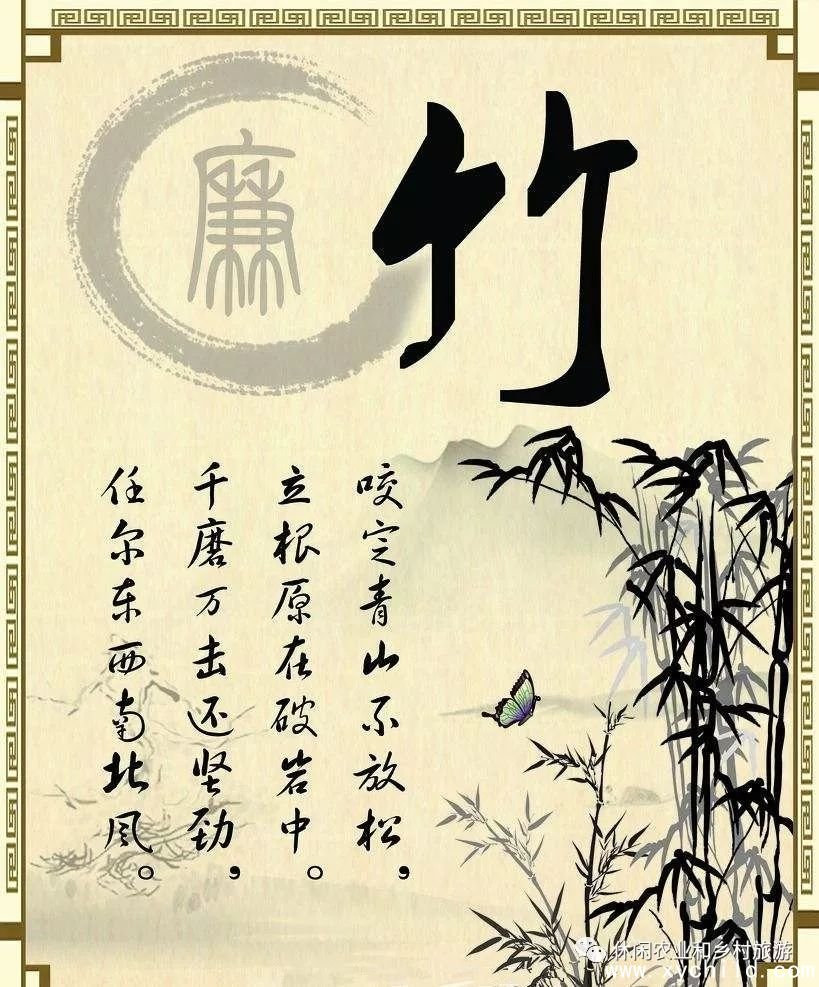 廉
竹
咬定青山不放松，
立根原在破岩中。
千磨万击还坚劲，
任尔东西南北风。
休闲农业和乡村旅游
www.xychild.com